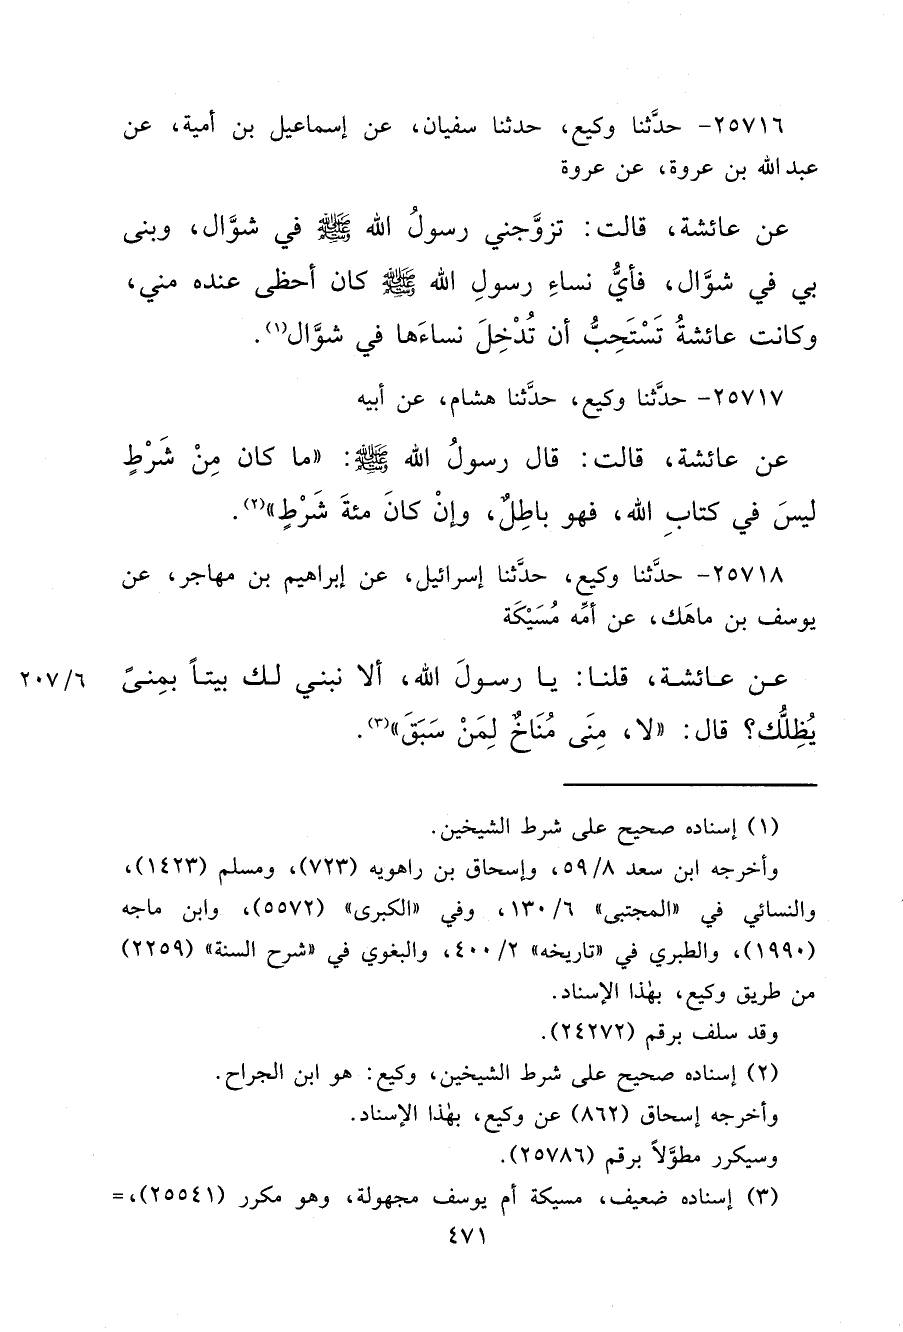 ٢٥٧١٦- حدَّثنا وكيع، حدثنا سفيان، عن إسماعيل بن أمية، عن
عبد الله بن عروة، عن عروة
عن عائشة، قالت: تزوَّجني رسولُ الله ﷺ في شوَّال، وبنى
بي في شوَّال، فأيُّ نساءِ رسولِ الله ﷺ كان أحظى عنده مني،
وكانت عائشةُ تَسْتَحِبُّ أن تُدْخِلَ نساءَها في شوَّال(١).
٢٥٧١٧- حدَّثنا وكيع، حدَّثنا هشام، عن أبيه
عن عائشة، قالت: قال رسولُ الله ﷺ: «ما كان مِنْ شَرْطٍ
ليسَ في كتابِ الله، فهو باطِلٌ، وإنْ كانَ مئةَ شَرْطٍ»(٢).
٢٥٧١٨- حدَّثنا وكيع، حدَّثنا إسرائيل، عن إبراهيم بن مهاجر، عن
يوسف بن ماهَك، عن أمِّه مُسَيْكَة
عن عائشة، قلنا: يا رسولَ الله، ألا نبني لك بيتاً بمِنىً ٢٠٧/٦
يُظِلُّك؟ قال: «لا، مِنَى مُنَاخٌ لِمَنْ سَبَقَ»(٣).
(١) إسناده صحيح على شرط الشيخين.
وأخرجه ابن سعد ٥٩/٨، وإسحاق بن راهويه (٧٢٣)، ومسلم (١٤٢٣)،
والنسائي في «المجتبى» ١٣٠/٦، وفي «الكبرى» (٥٥٧٢)، وابن ماجه
(١٩٩٠)، والطبري في «تاريخه» ٤٠٠/٢، والبغوي في «شرح السنة» (٢٢٥٩)
من طريق وكيع، بهٰذا الإسناد.
وقد سلف برقم (٢٤٢٧٢).
(٢) إسناده صحيح على شرط الشيخين، وكيع: هو ابن الجراح.
وأخرجه إسحاق (٨٦٢) عن وكيع، بهٰذا الإسناد.
وسيكرر مطوَّلاً برقم (٢٥٧٨٦).
(٣) إسناده ضعيف، مسيكة أم يوسف مجهولة، وهو مكرر (٢٥٥٤١)،=
٤٧١